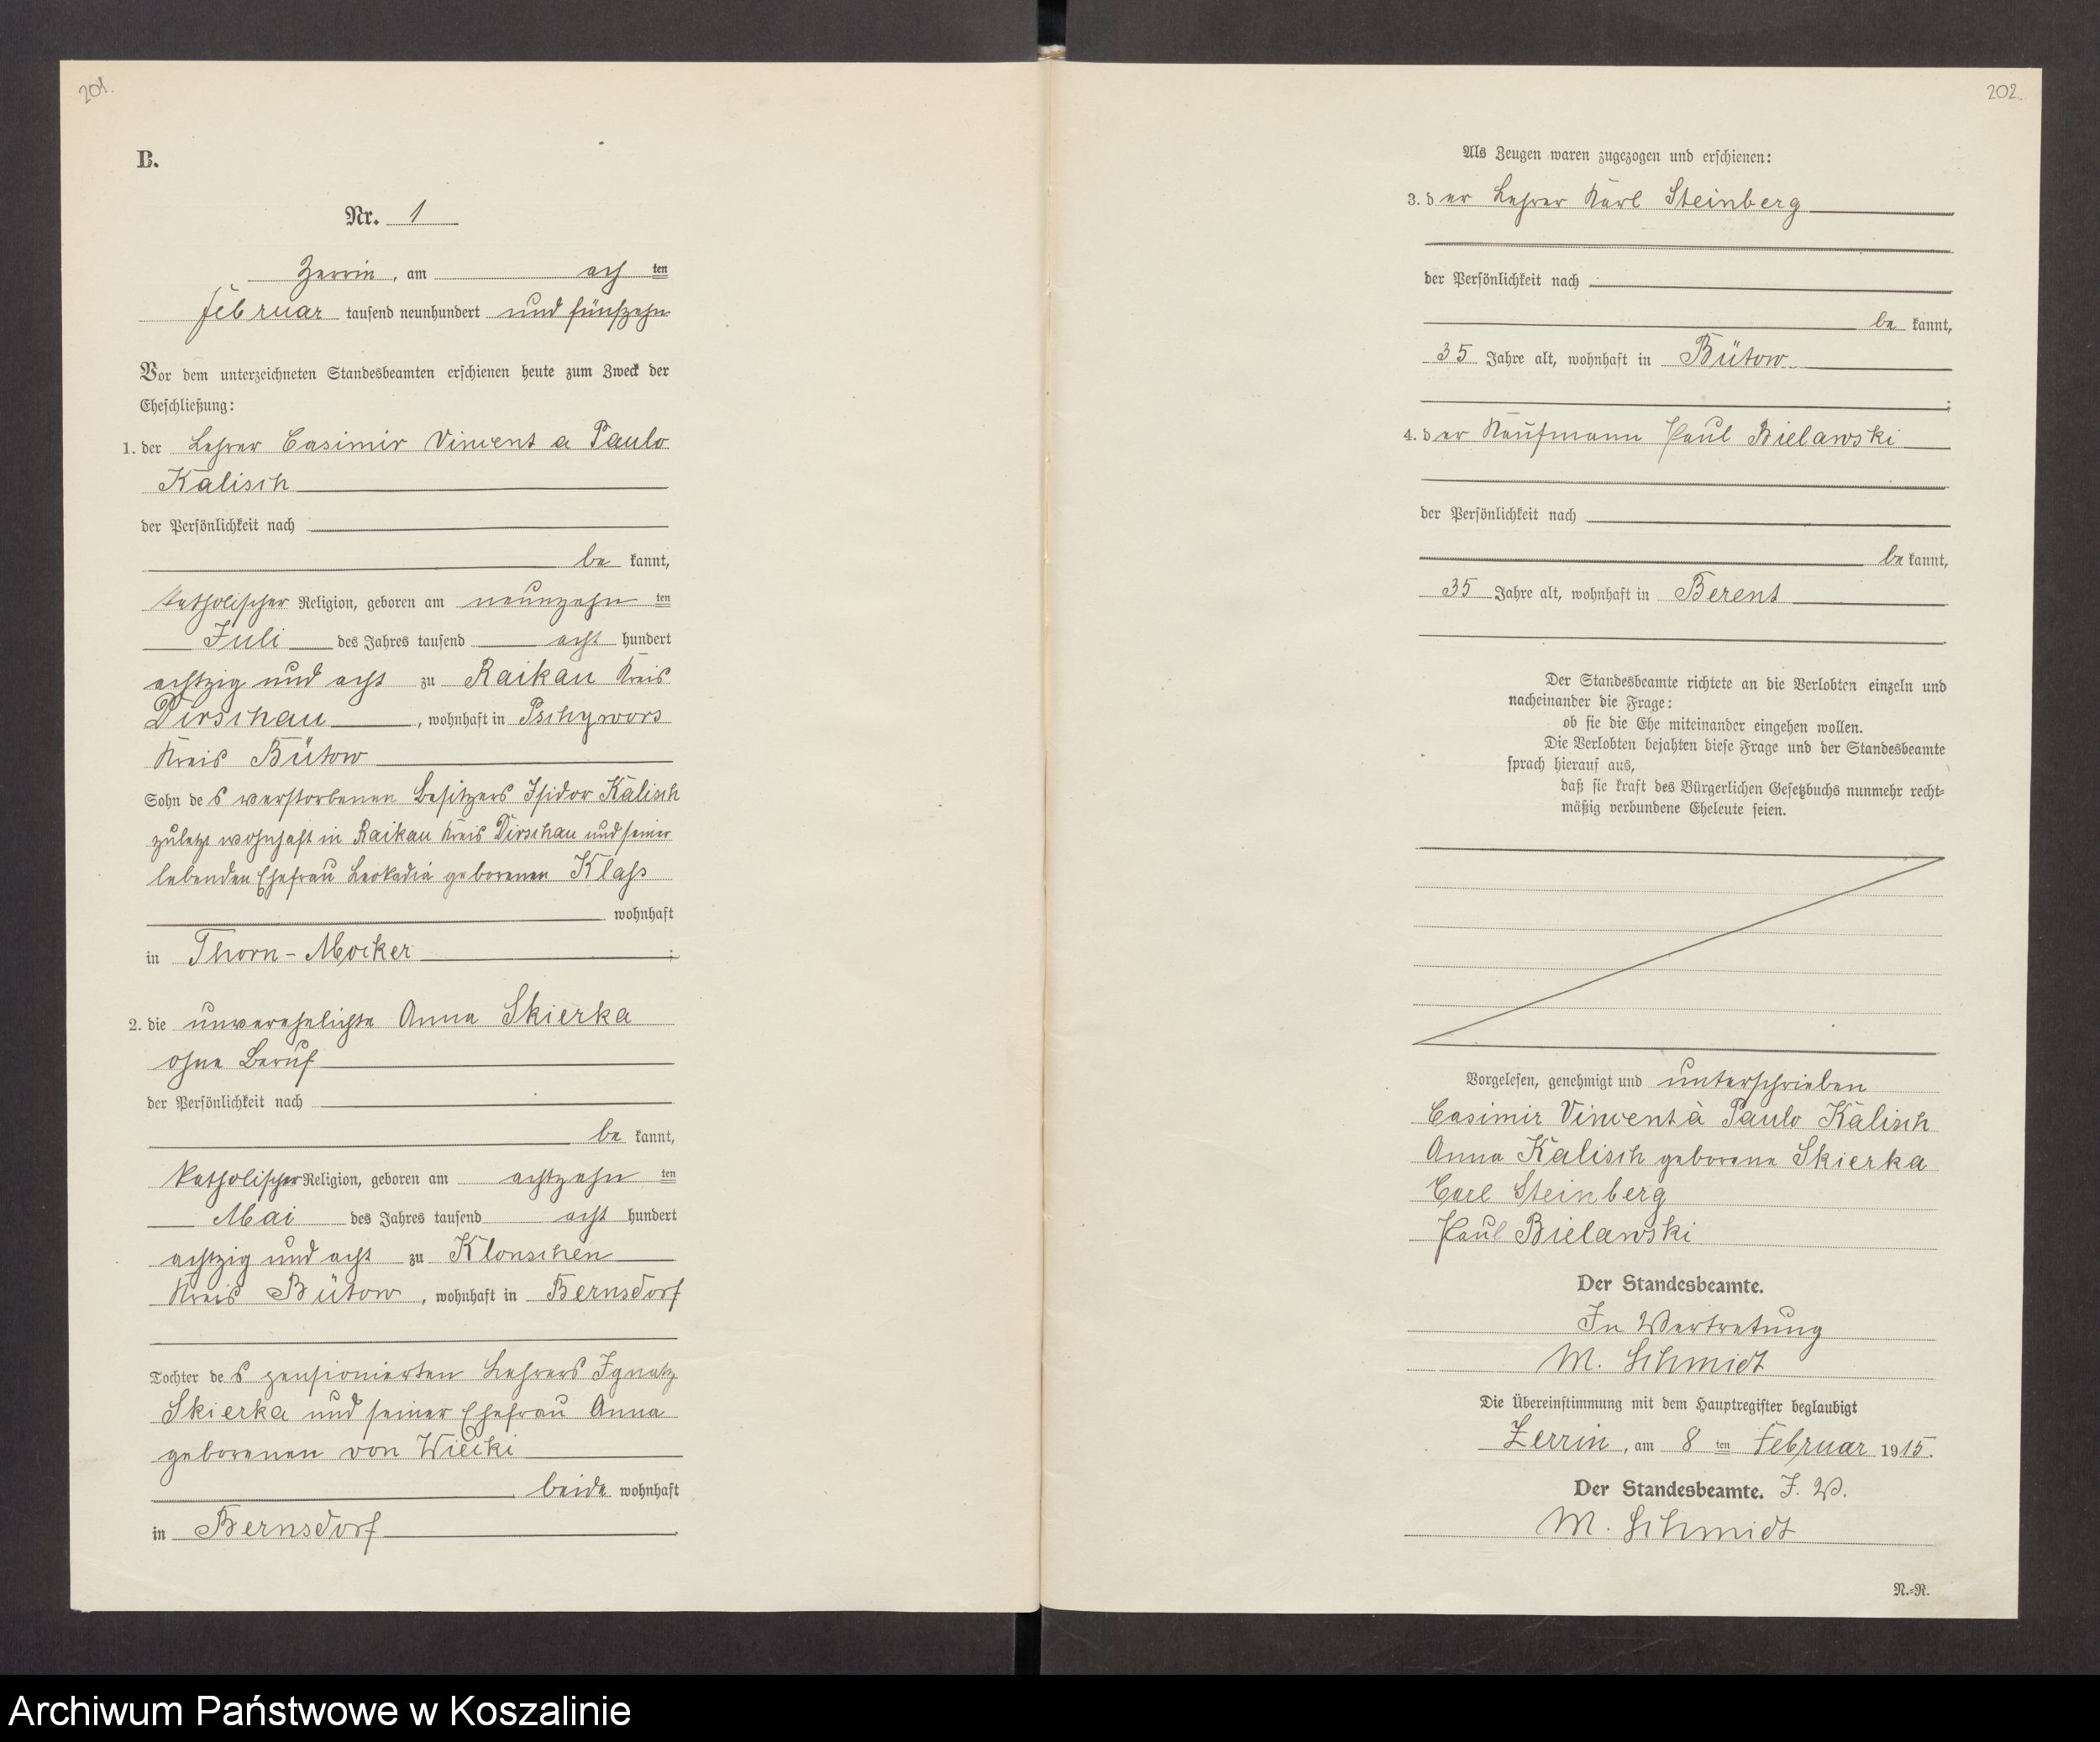 201.
B.
Nr. 1
Zerrin, am ach ten
Februar tausend neunhundert und fünfzehn
Vor dem unterzeichneten Standesbeamten erschienen heute zum Zweck der
Eheschließung:
1. der Lehrer Casimir Vincent a Paulo
Kalisch
der Persönlichkeit nach
be kannt,
katholischer Religion, geboren am neunzehn ten
Juli des Jahres tausend acht hundert
achtzig und acht zu Raikau Kreis
Dirschau, wohnhaft in Pschywors
Kreis Bütow
Sohn des verstorbenen Besitzers Isidor Kalisch
zuletzt wohnhaft in Raikau Kreis Dirschau und seiner
lebenden Ehefrau Leokadia geborenen Klass
wohnhaft
in Thorn-Mocker ;
2. die unverehelichte Anna Skierka
ohne Beruf
der Persönlichkeit nach
be kannt,
katholischer Religion, geboren am achtzehn ten
Mai des Jahres tausend acht hundert
achtzig und acht zu Klonschen
Kreis Bütow, wohnhaft in Bernsdorf
Tochter des pensionierten Lehrers Ignatz
Skierka und seiner Ehefrau Anna
geborenen von Wiecki
beide wohnhaft
in Bernsdorf.
202.
Als Zeugen waren zugezogen und erschienen:
3. der Lehrer Karl Steinberg
der Persönlichkeit nach
be kannt,
35 Jahre alt, wohnhaft in Bütow
;
4. der Kaufmann Paul Bielawski
der Persönlichkeit nach
be kannt,
35 Jahre alt, wohnhaft in Berent
Der Standesbeamte richtete an die Verlobten einzeln und
nacheinander die Frage:
ob sie die Ehe miteinander eingehen wollen.
Die Verlobten bejahten diese Frage und der Standesbeamte
sprach hierauf aus,
daß sie kraft des Bürgerlichen Gesetzbuchs nunmehr recht-
mäßig verbundene Eheleute seien.
Vorgelesen, genehmigt und unterschrieben
Casimir Vincent à Paulo Kalisch
Anna Kalisch geborene Skierka
Carl Steinberg
Paul Bielawski
Der Standesbeamte.
In Vertretung
M. Schmidt
Die Übereinstimmung mit dem Hauptregister beglaubigt
Zerrin, am 8 ten Februar 1915.
Der Standesbeamte. I. V.
M. Schmidt
N.-R.
Archiwum Państwowe w Koszalinie